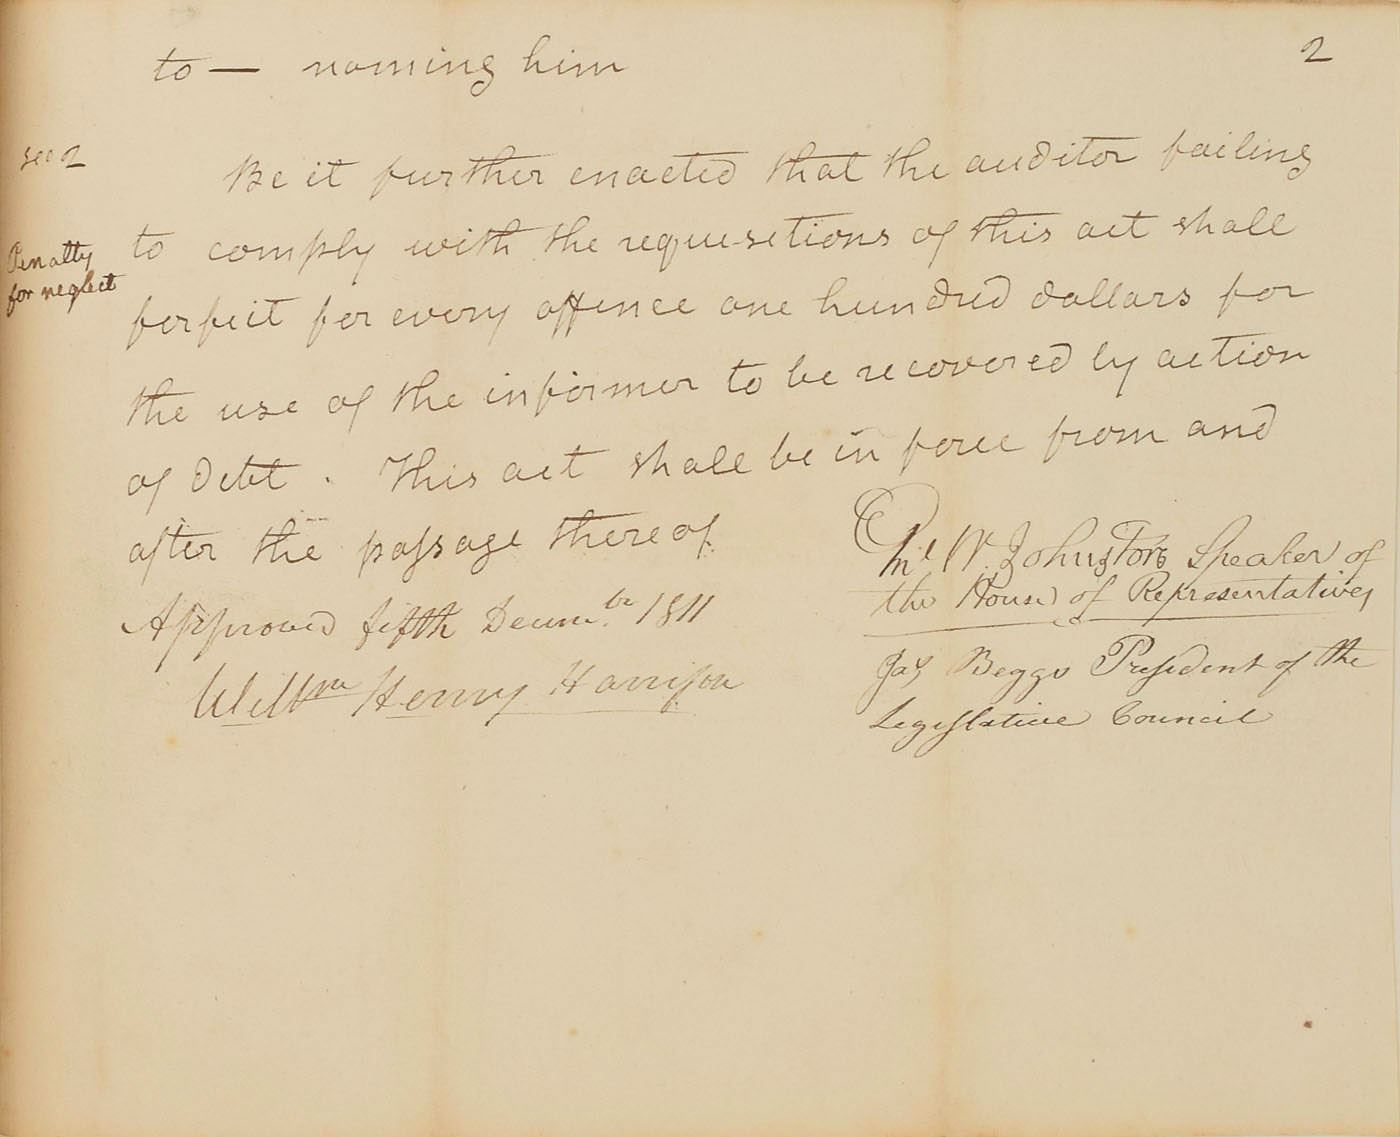 2
to — naming him
sec 2
Be it further enacted that the auditor failing
to comply with the requisitions of this act shall
Penalty
for neglect
forfeit for every offence one hundred dollars for
the use of the informer to be recovered by action
of debt. This act shall be in force from and
after the passage thereof
Gnl W. Johnston Speaker of
the House of Representatives
Approved fifth Decemᵇᵉʳ 1811
Willᵐ Henry Harrison
Jaˢ Beggs President of the
Legislative Council